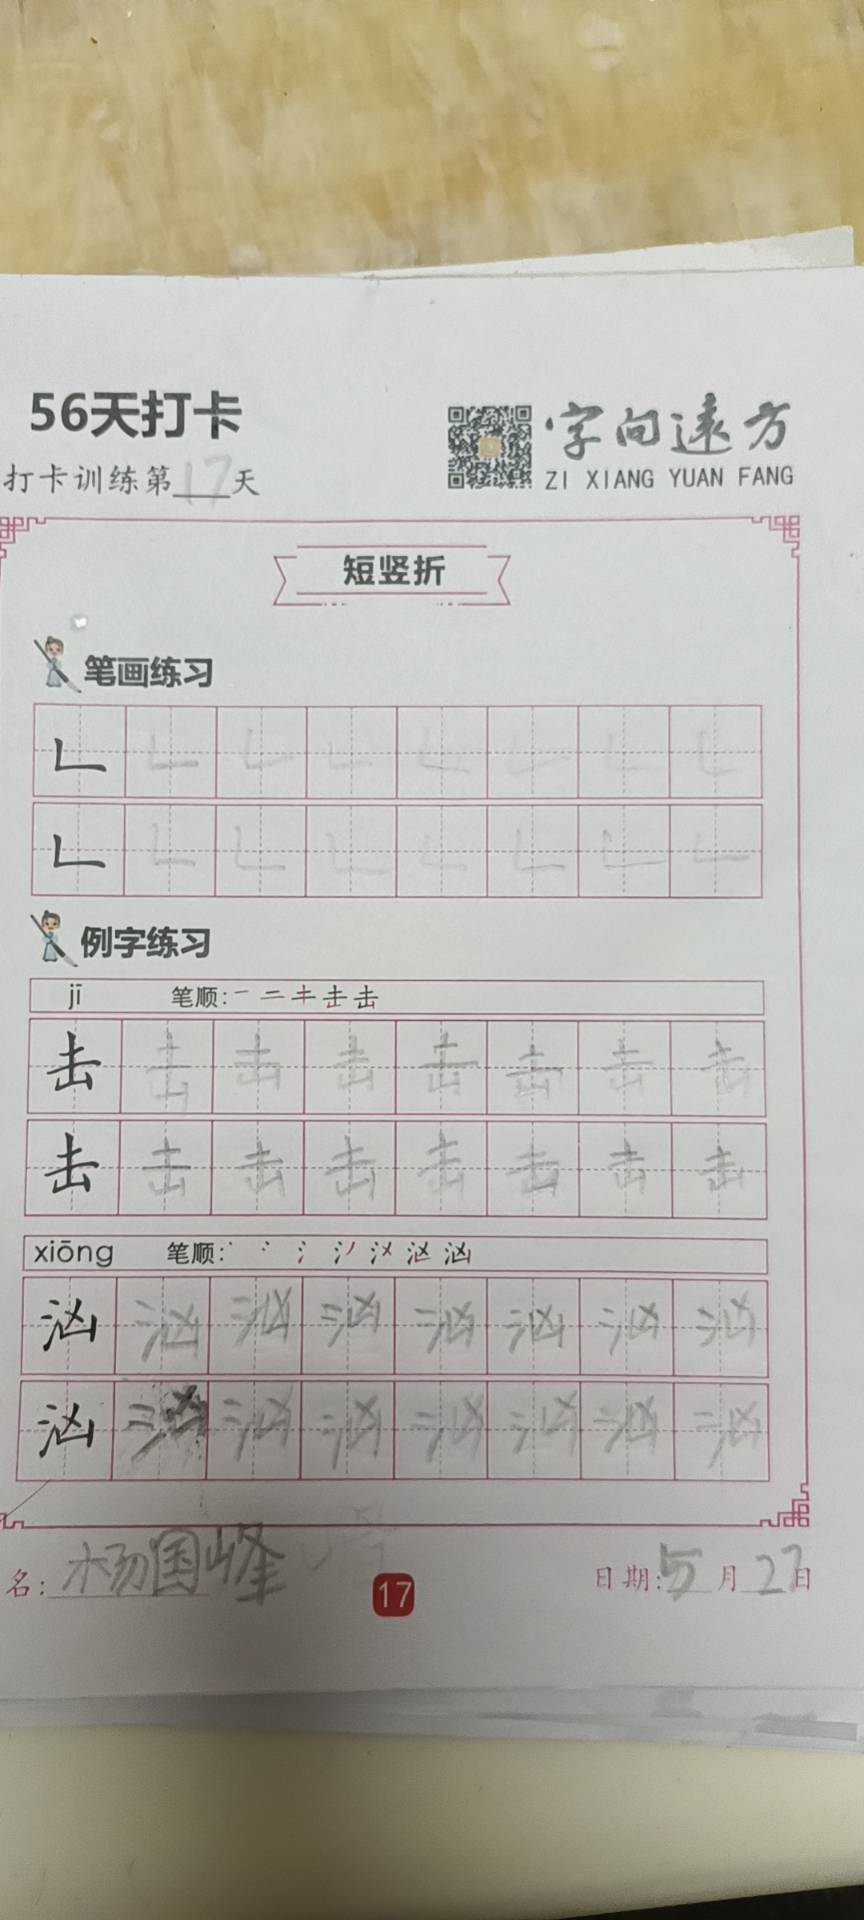 56天打卡
字向远方
打卡训练第17天
ZI XIANG YUAN FANG
短竖折
笔画练习
𠃊 𠃊 𠃊 𠃊 𠃊 𠃊 𠃊 𠃊
𠃊 𠃊 𠃊 𠃊 𠃊 𠃊 𠃊 𠃊
例字练习
jī 笔顺:
击 击 击 击 击 击 击 击
击 击 击 击 击 击 击 击
xiōng 笔顺:
汹 汹 汹 汹 汹 汹 汹 汹
汹 汹 汹 汹 汹 汹 汹 汹
名:杨国峰
17
日期:5月27日